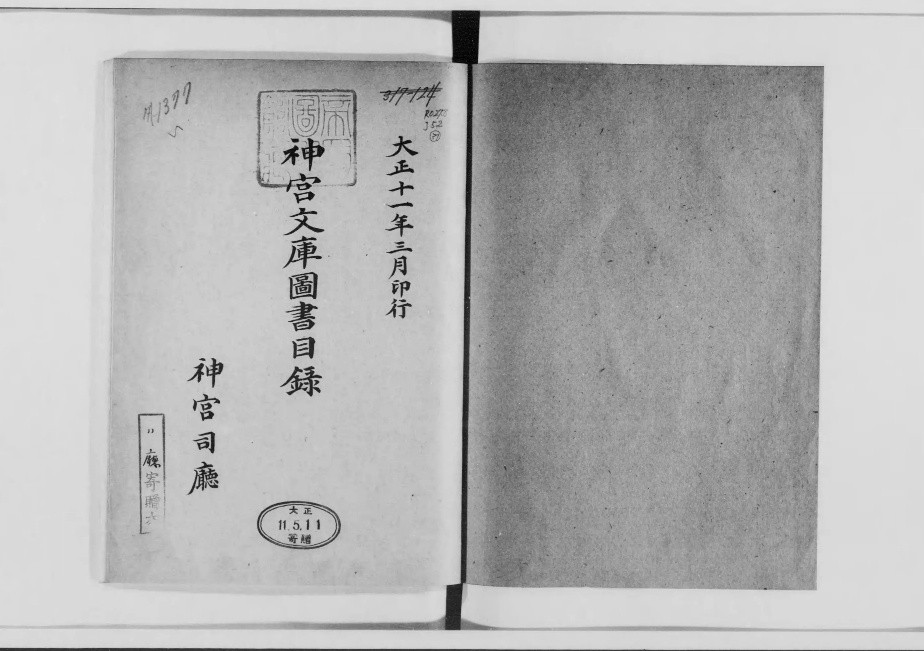 大正十一年三月印行
神宮文庫圖書目録
神宮司廳
317-124
大正
11.5.11
寄贈
〃廳寄贈